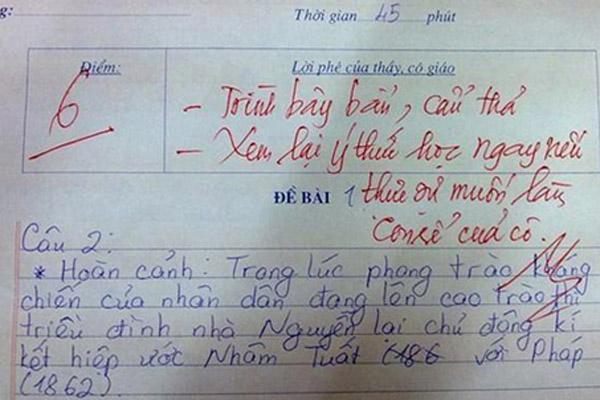 ng:
Thời gian 45 phút
Điểm:
Lời phê của thầy, cô giáo
6
- Trình bày bẩn, cẩu thả
- Xem lại ý thức học ngay nếu
thực sự muốn làm
"con rể" của cô.
ĐỀ BÀI 1
Câu 2:
* Hoàn cảnh: Trong lúc phong trào kháng
chiến của nhân dân đang lên cao trào thì
triều đình nhà Nguyễn lại chủ động kí
kết hiệp ước Nhâm Tuất (186 với Pháp
(1862).